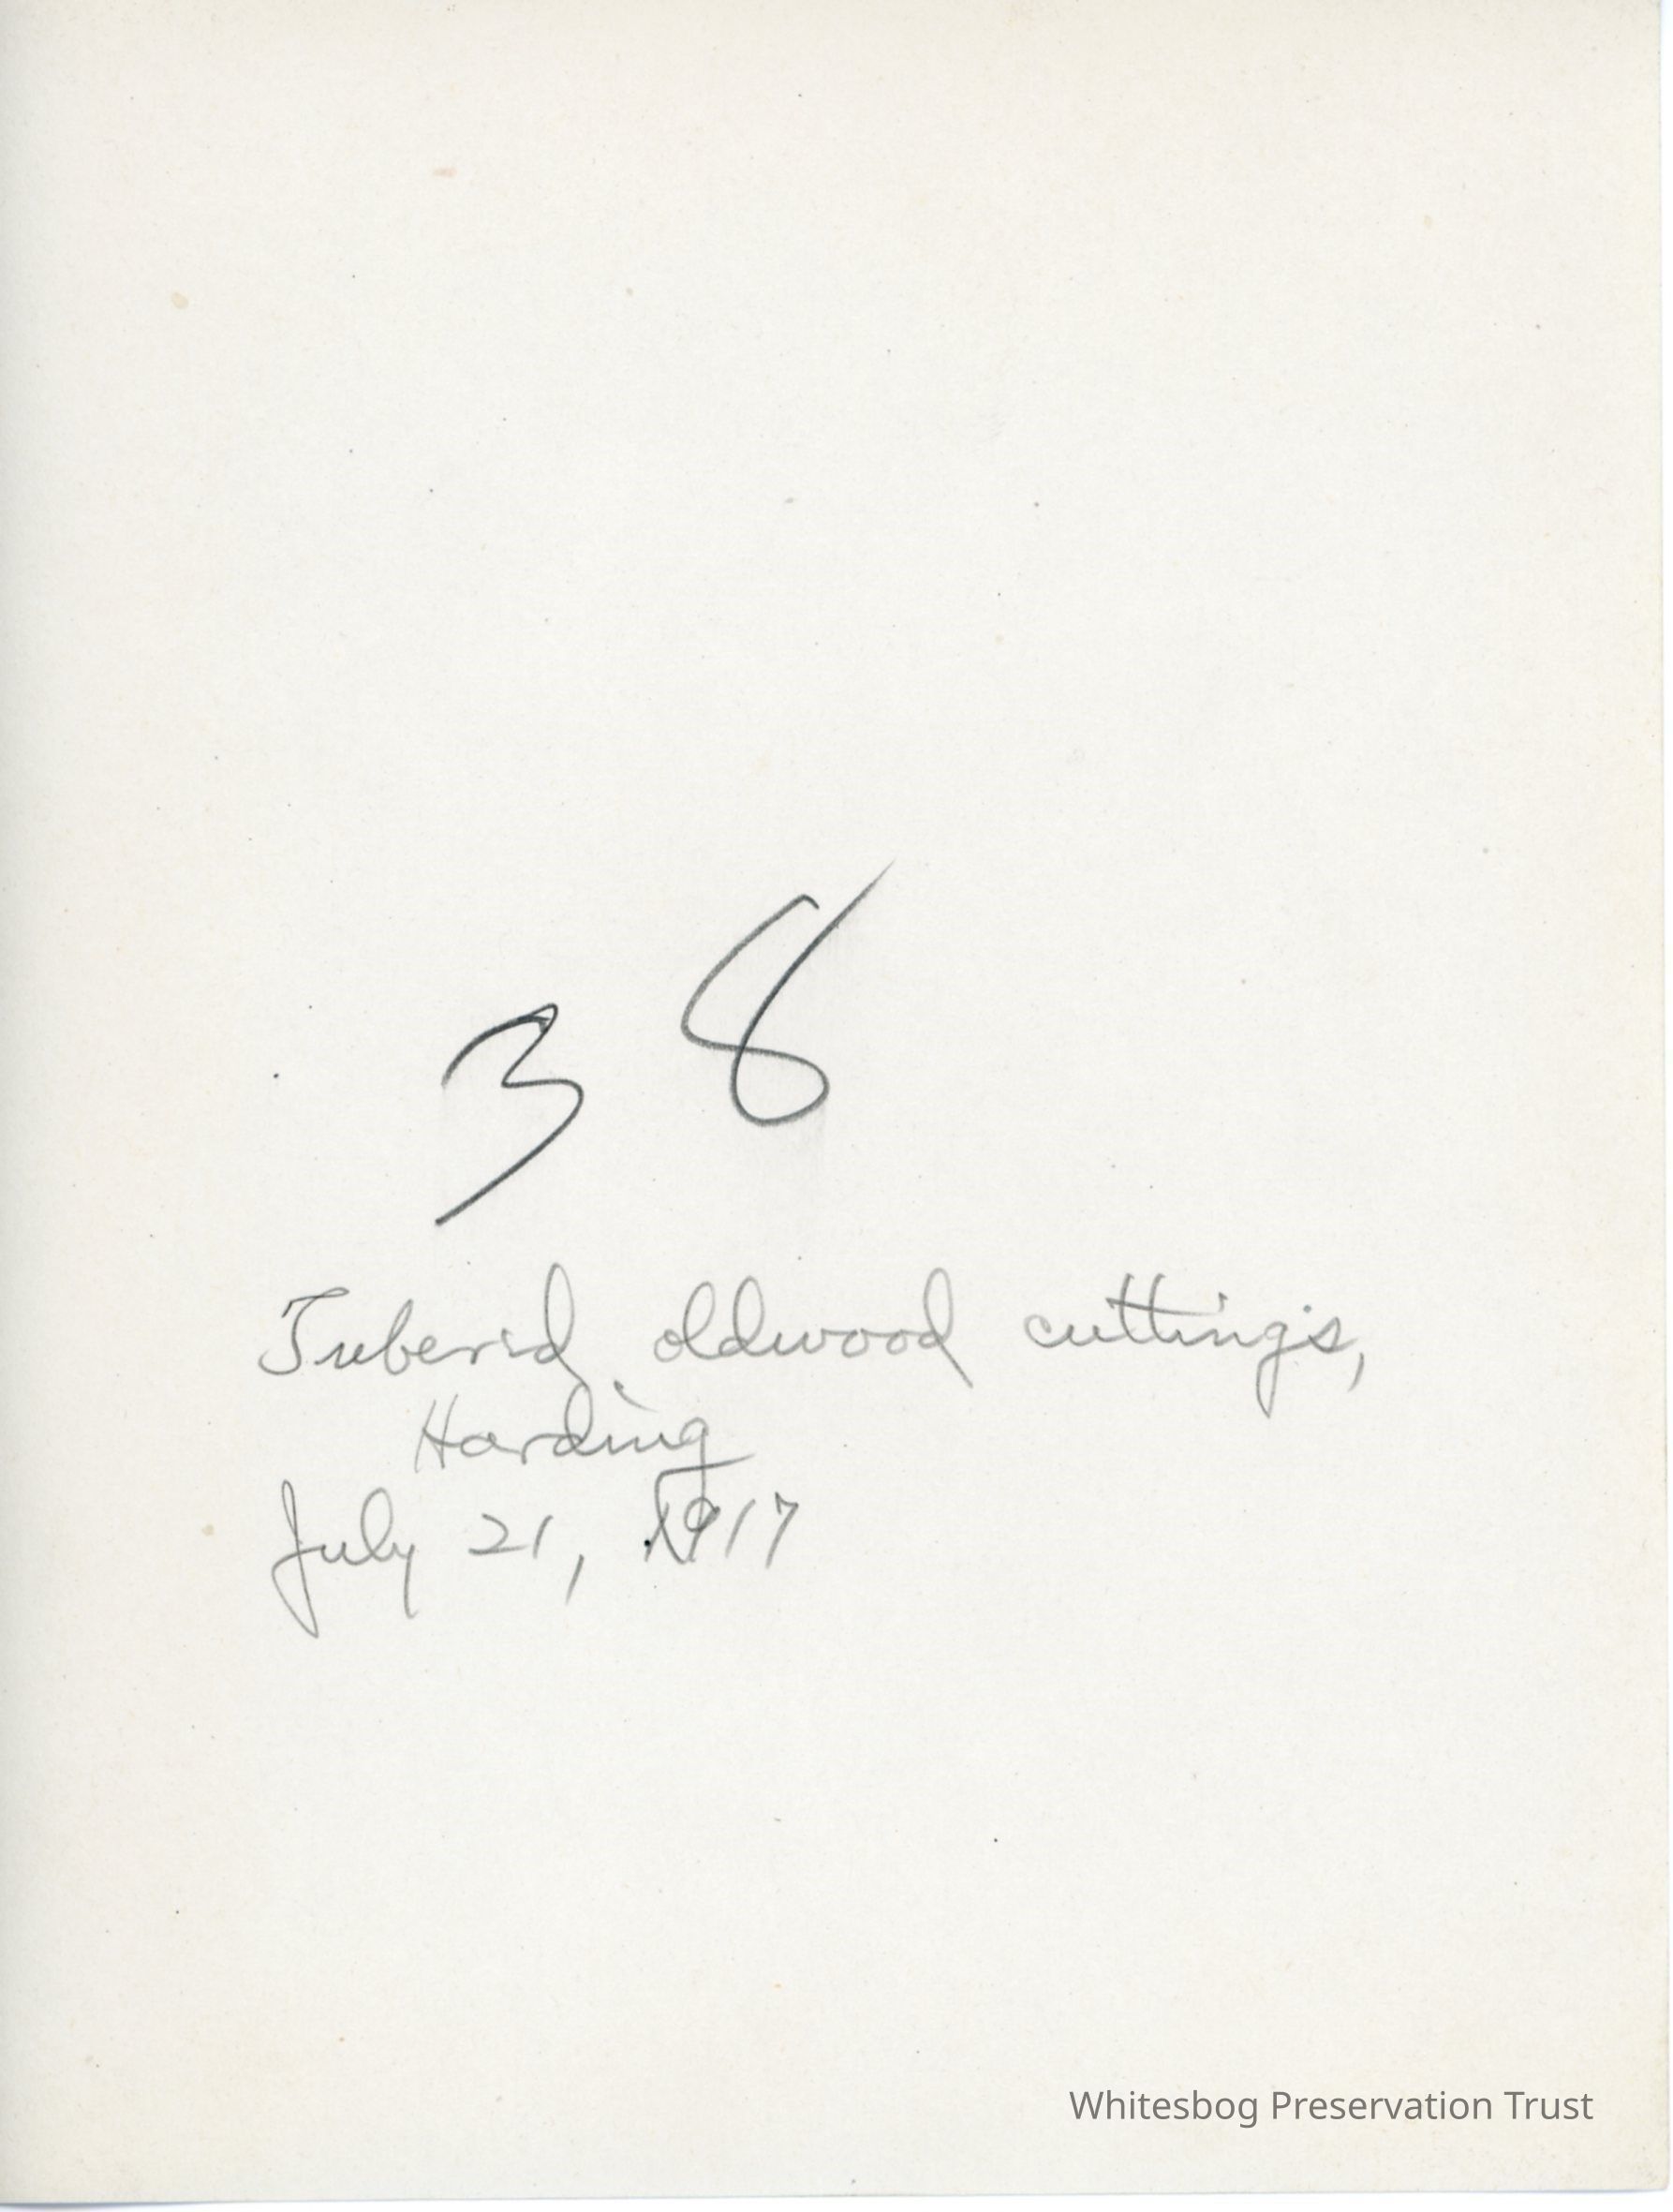 38
Tubered oldwood cuttings,
Harding
July 21, 1917
Whitesbog Preservation Trust